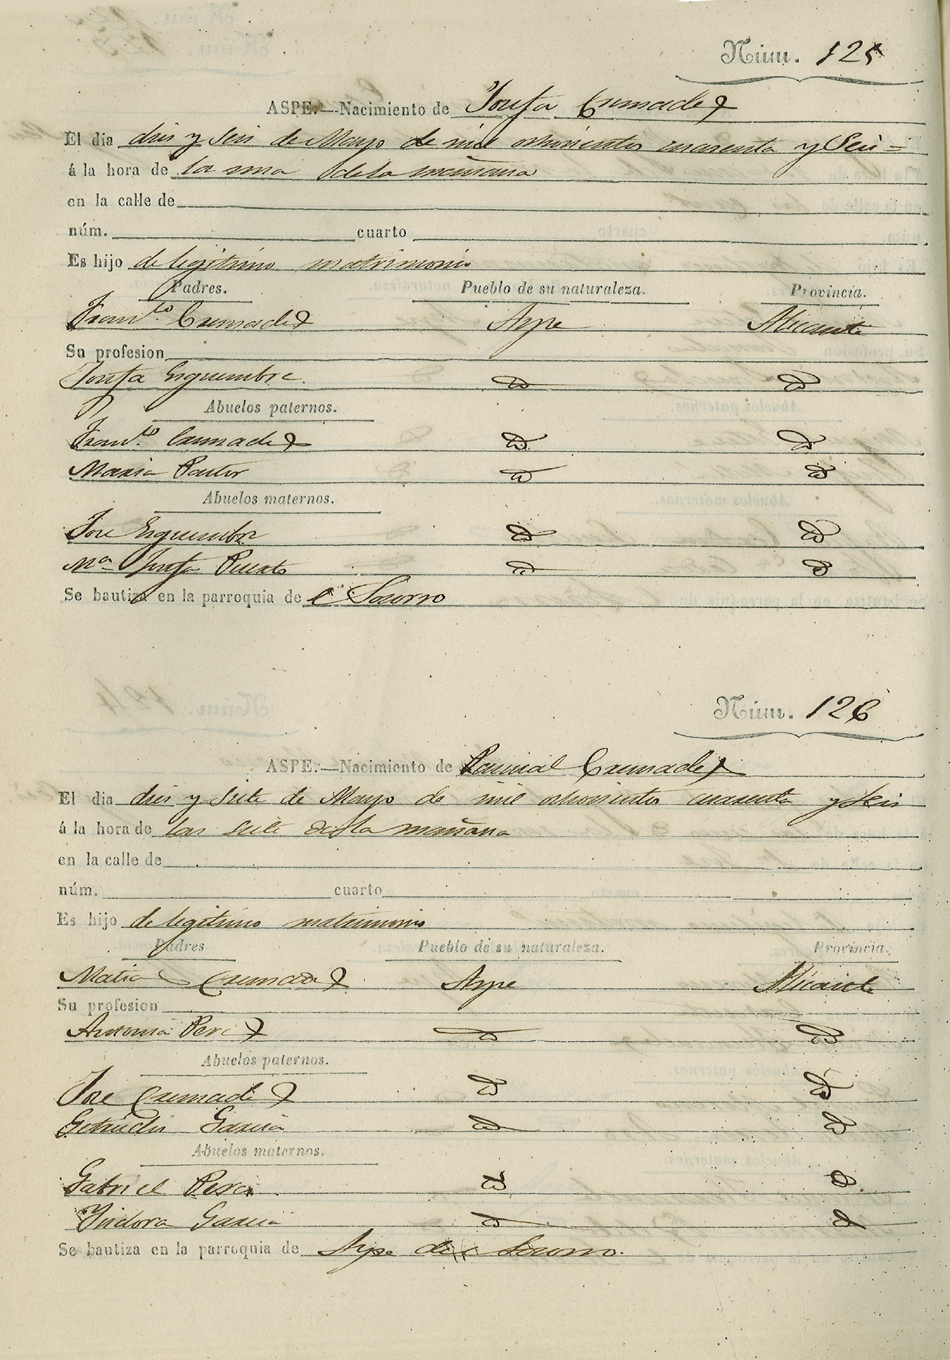 Núm. 125
ASPE.—Nacimiento de Josefa Cremades
El dia dies y Seis de Mayo de mil ochocientos cuarenta y Seis=
á la hora de la una de la mañana
en la calle de
núm. cuarto
Es hijo de legitimo matrimonio
Padres. Pueblo de su naturaleza. Provincia.
Franco Cremades Aspe Alicante
Su profesion
Josefa Esquembre d d
Abuelos paternos.
Franco Cremades d d
Maria Pastor d d
Abuelos maternos.
Jose Esquembre d d
Ma Josefa Puerto d d
Se bautiza en la parroquia de el Socorro
Núm. 126
ASPE.—Nacimiento de Pascual Cremades
El dia dies y Siete de Mayo de mil ochocientos cuarenta y seis
á la hora de las siete de la mañana
en la calle de
núm. cuarto
Es hijo de legitimo matrimonio
Padres Pueblo de su naturaleza. Provincia.
Matias Cremades Aspe Alicante
Su profesion
Antonia Perez d d
Abuelos paternos.
Jose Cremades d d
Getrudis Garcia d d
Abuelos maternos.
Gabriel Perez d d
Ysidora Garcia d d
Se bautiza en la parroquia de Aspe del Socorro.